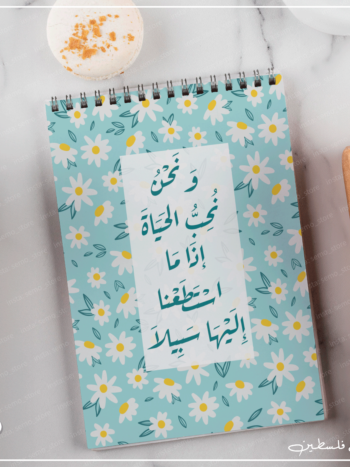 وَ نَحْنُ
نُحِبُّ الحَيَاةَ
إِذَا مَا
اسْتَطَعْنا
إِلَيْهَا سَبِيلاَ
فلسطين